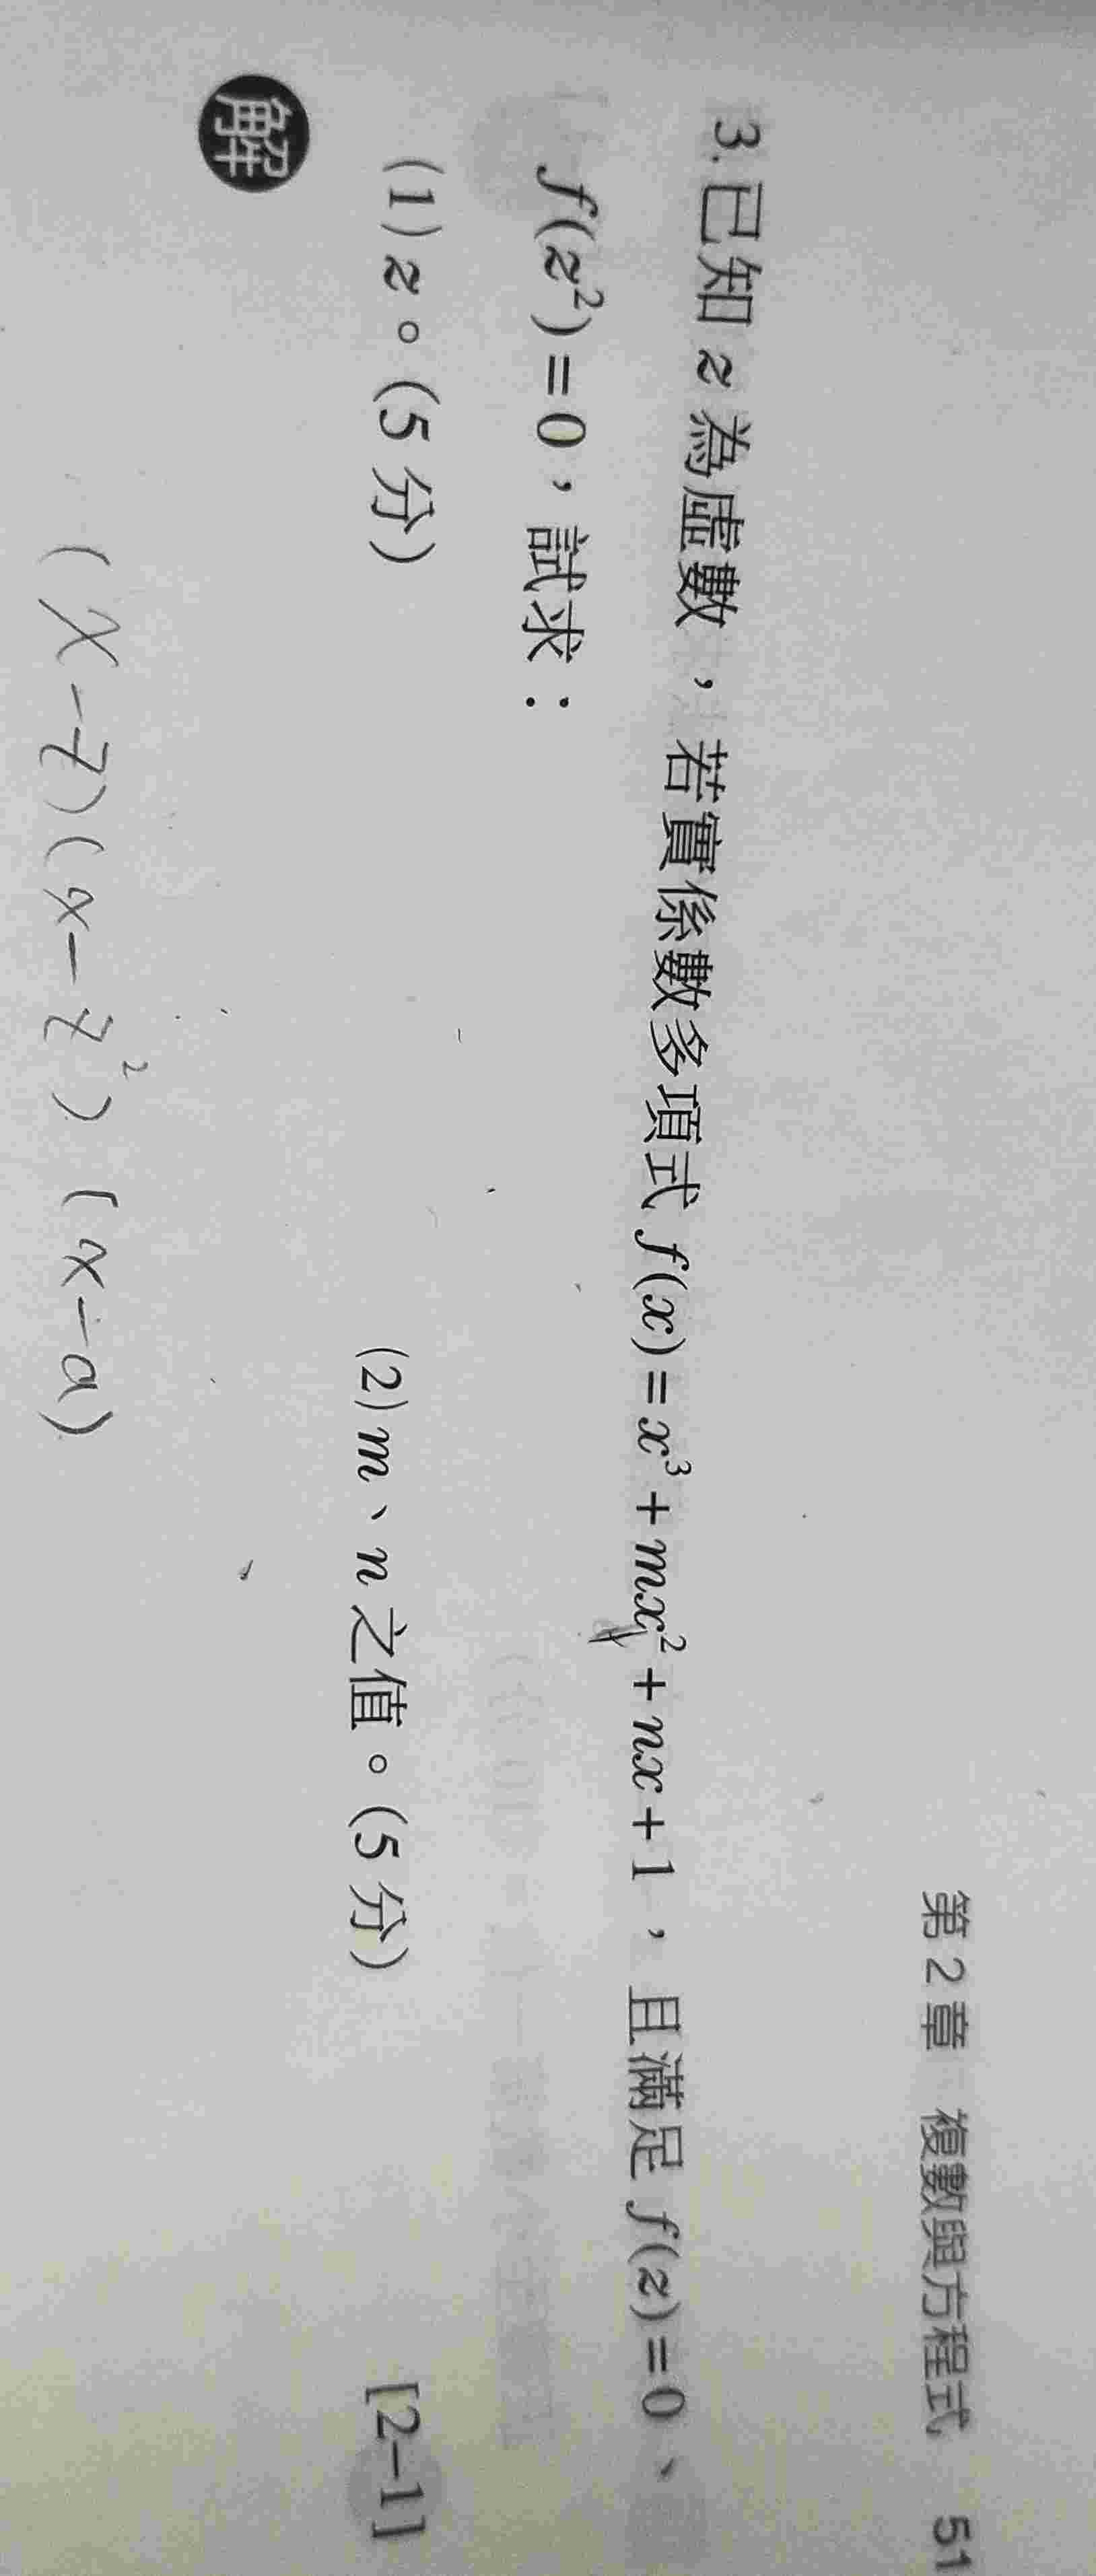 第2章 複數與方程式 51
3.已知 z 為虛數，若實係數多項式 f(x)=x³+mx²+nx+1，且滿足 f(z)=0、
f(z²)=0，試求：
(1) z。(5分) (2) m、n 之值。(5分) [2-1]
解
(x-z)(x-z²)(x-a)